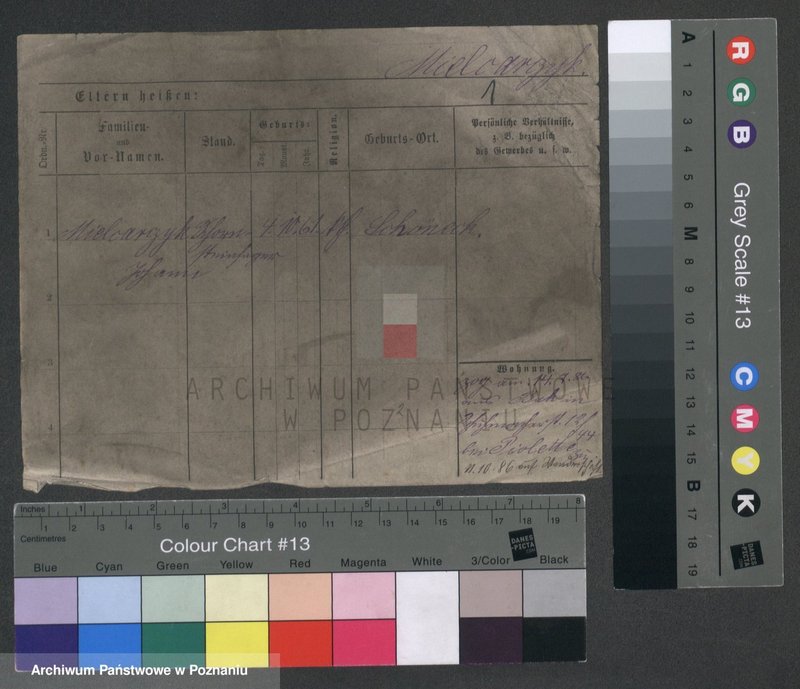 Mielcarzyk.
1
Eltern heißen:
Ordn.-Nr.
Familien-
und
Vor-Namen.
Stand.
Geburts:
Tag.
Monat.
Jahr.
Religion.
Geburts-Ort.
Persönliche Verhältniße,
z. B. bezüglich
des Gewerbes u. s. w.
1
Mielcarzyk
Johann
Schornsteinfeger
4 10 61
kf.
Schöneck.
2
3
4
Wohnung.
zog am
aus
bei Pioletti
11.10.86 auf
ARCHIWUM PAŃSTWOWE
W POZNANIU
Inches 1 2 3 4 5 6 7 8
Centimetres 1 2 3 4 5 6 7 8 9 10 11 12 13 14 15 16 17 18 19
Colour Chart #13
Blue Cyan Green Yellow Red Magenta White 3/Color Black
DANES
PICTA
.COM
Archiwum Państwowe w Poznaniu
A 1 2 3 4 5 6 M 8 9 10 11 12 13 14 15 B 17 18 19
R G B
Grey Scale #13
C M Y K
DANES
PICTA
.COM